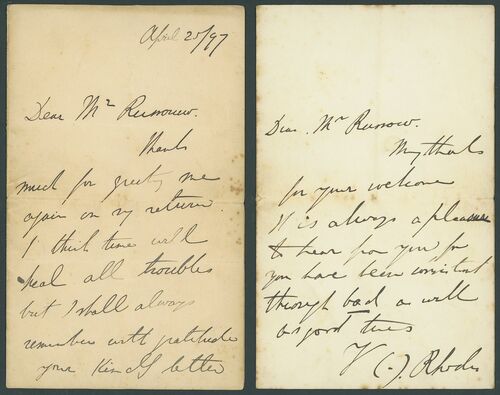 April 25/97
Dear Mr Russouw.
Thanks
much for greeting me
again on my return.
I think time will
heal all troubles
but I shall always
remember with gratitude
your kindly letter
Dear Mr Russouw.
My thanks
for your welcome
It is always a pleasure
to hear from you for
you have been consistent
through bad as well
as good times
Y C. J. Rhodes